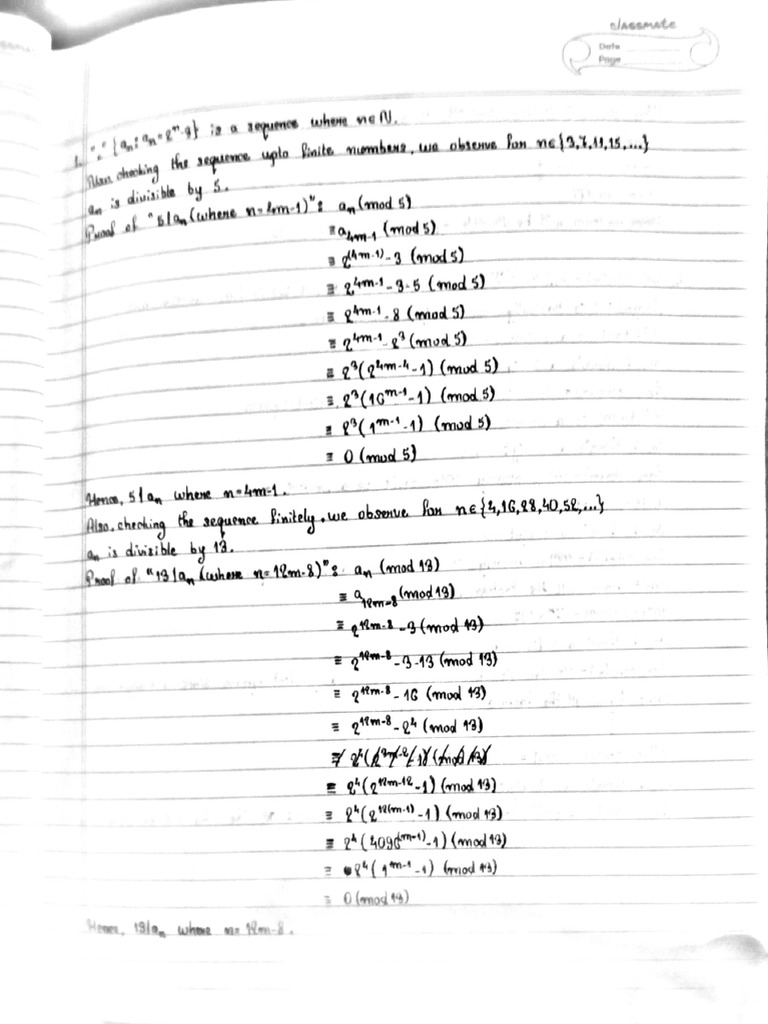 classmate
Date
Page
1. ∵ {aₙ : aₙ = 2ⁿ-3} is a sequence where n∈N.
Also checking the sequence upto finite numbers, we observe for n∈{3,7,11,15,...}
aₙ is divisible by 5.
Proof of "5|aₙ (where n=4m-1)": aₙ (mod 5)
≡ a₄ₘ₋₁ (mod 5)
≡ 2⁽⁴ᵐ⁻¹⁾-3 (mod 5)
≡ 2⁴ᵐ⁻¹-3-5 (mod 5)
≡ 2⁴ᵐ⁻¹-8 (mod 5)
≡ 2⁴ᵐ⁻¹-2³ (mod 5)
≡ 2³(2⁴ᵐ⁻⁴-1) (mod 5)
≡ 2³(16ᵐ⁻¹-1) (mod 5)
≡ 2³(1ᵐ⁻¹-1) (mod 5)
≡ 0 (mod 5)
Hence, 5|aₙ where n=4m-1.
Also, checking the sequence finitely, we observe for n∈{4,16,28,40,52,...}
aₙ is divisible by 13.
Proof of "13|aₙ (where n=12m-8)": aₙ (mod 13)
≡ a₁₂ₘ₋₈ (mod 13)
≡ 2¹²ᵐ⁻⁸-3 (mod 13)
≡ 2¹²ᵐ⁻⁸-3-13 (mod 13)
≡ 2¹²ᵐ⁻⁸-16 (mod 13)
≡ 2¹²ᵐ⁻⁸-2⁴ (mod 13)
≡ 2⁴(2¹²ᵐ⁻¹²-1) (mod 13)
≡ 2⁴(2¹²⁽ᵐ⁻¹⁾-1) (mod 13)
≡ 2⁴(4096⁽ᵐ⁻¹⁾-1) (mod 13)
≡ 2⁴(1ᵐ⁻¹-1) (mod 13)
≡ 0 (mod 13)
Hence, 13|aₙ where n=12m-8.